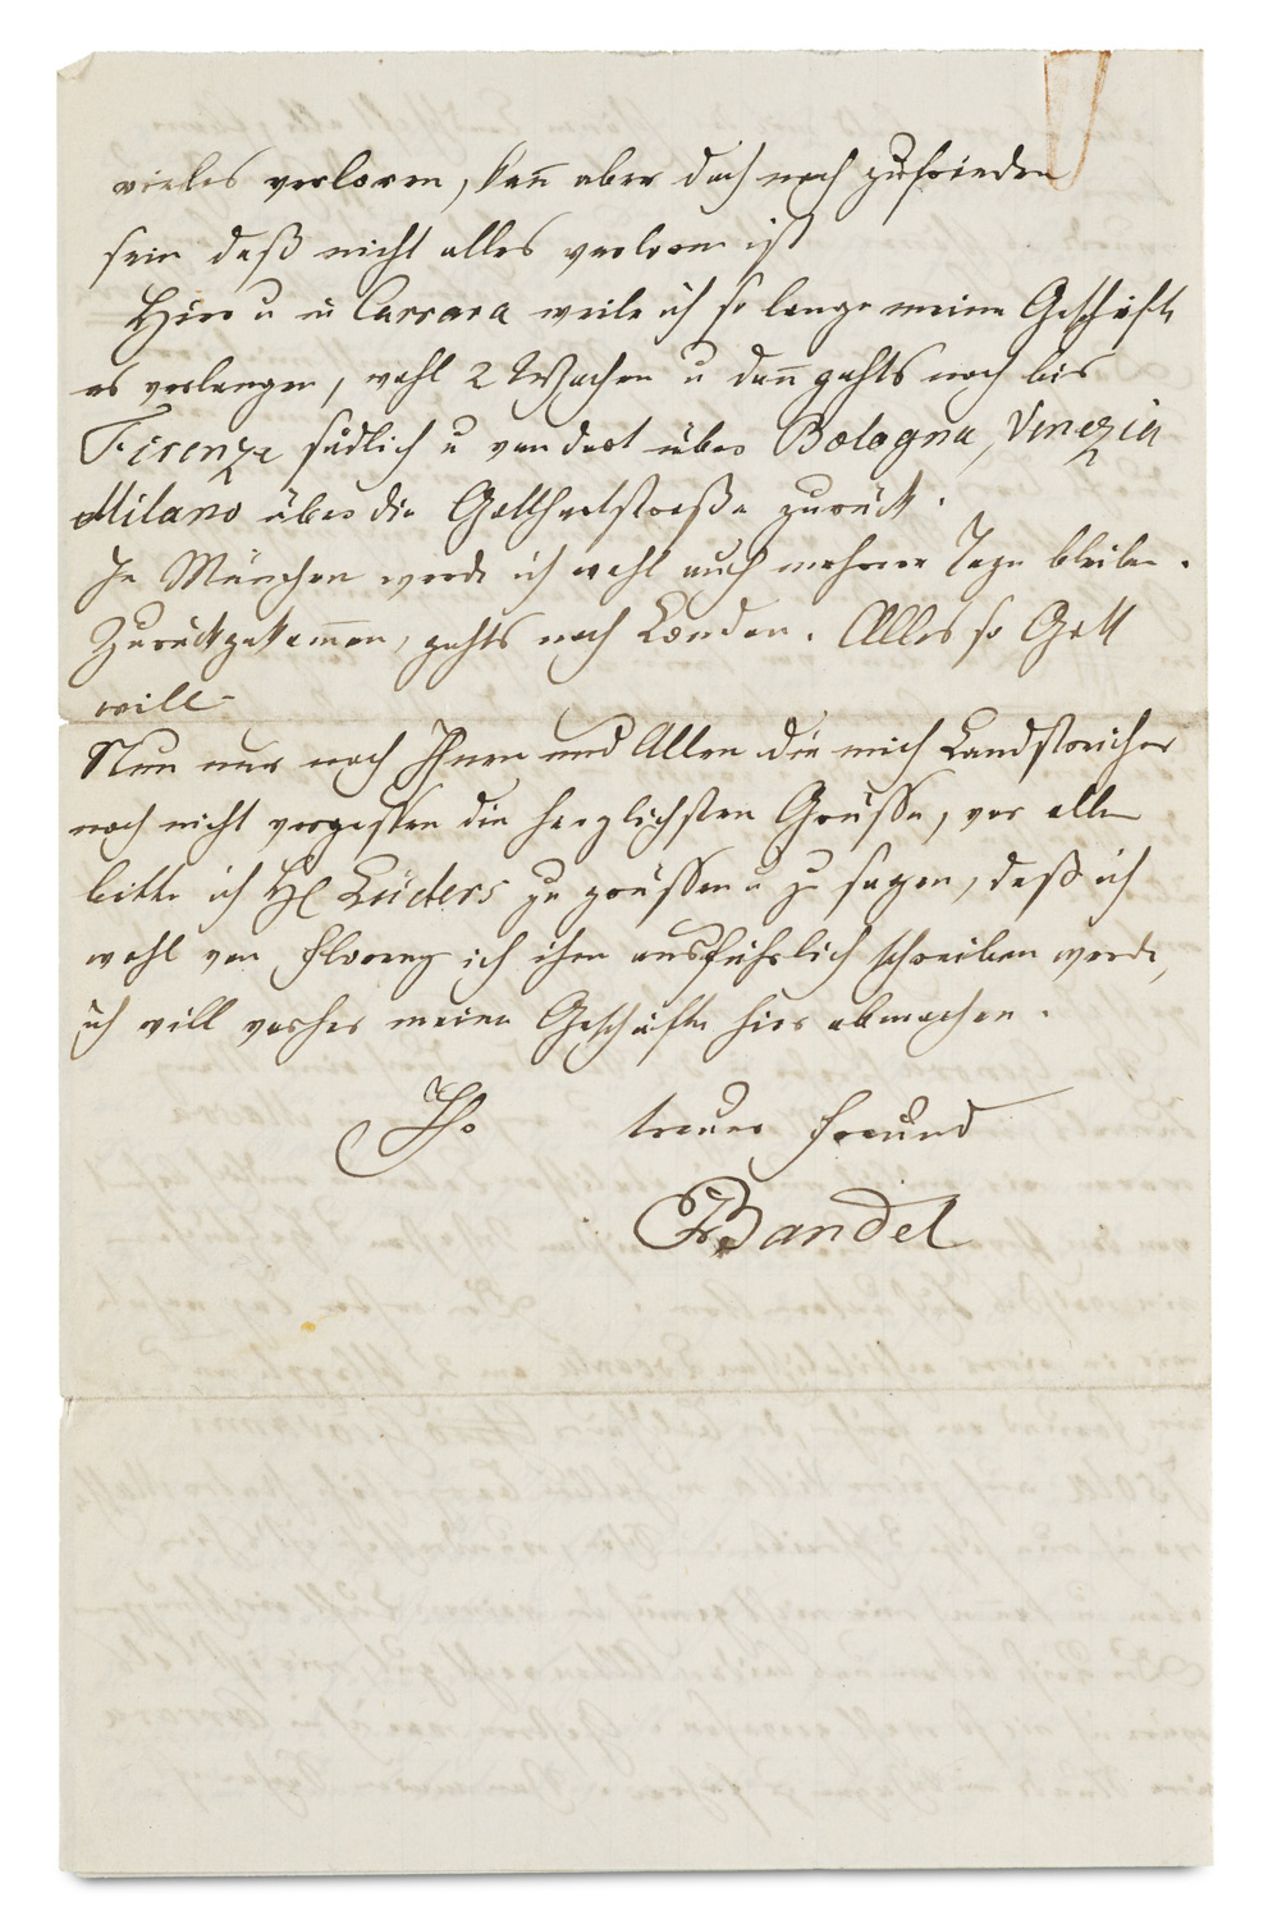 vieles verloren, kan̄ aber doch noch zufrieden
sein daß nicht alles verloren ist
Hier u in Carrara weile ich so lange meine Geschäfte
es verlangen, wohl 2 Wochen u dan̄ gehts noch bis
Firenze südlich u von dort über Bologna, Venezia
Milano über die Gotthartstraße zurück.
In München werde ich wohl auch mehrere Tage bleiben.
Zurückgekom̄en, gehts nach London. Alles so Gott
will
Nun nur noch Ihnen und Allen die mich Landstreicher
noch nicht vergessen die herzlichsten Grüsse, vor allen
bitte ich H Lüders zu grüssen u zu sagen, daß ich
wohl von Florenz ich ihm ausführlich schreiben werde,
ich will vorher meine Geschäfte hier abmachen.
Ihr treuer Freund
Bandel